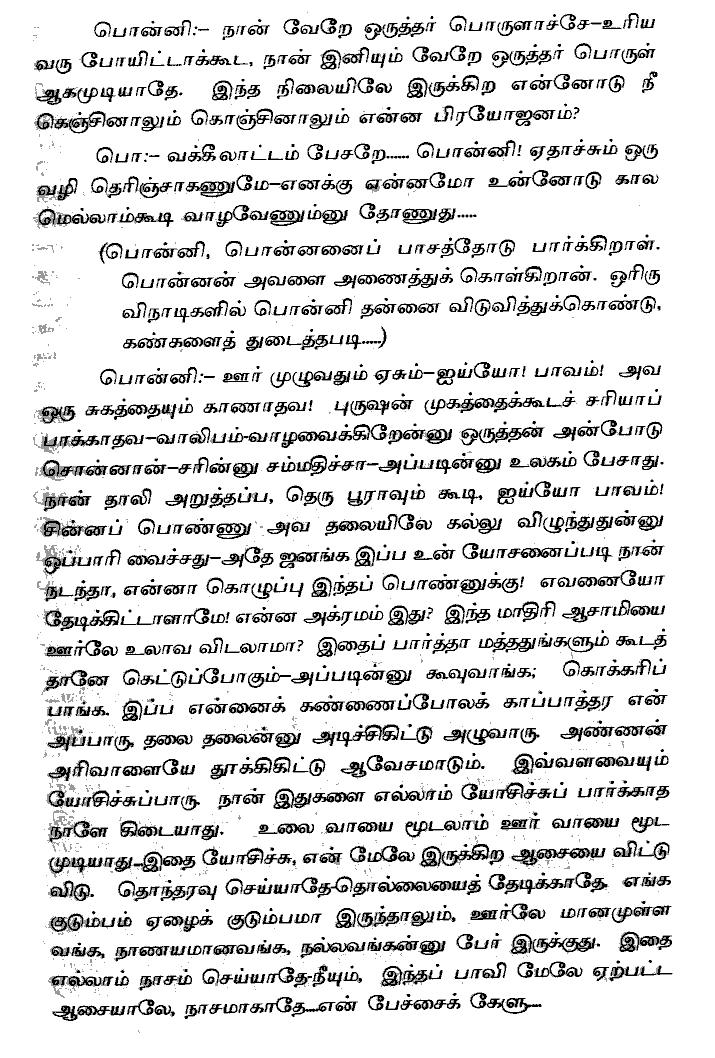 பொன்னி:– நான் வேறே ஒருத்தர் பொருளாச்சே–உரிய
வரு போயிட்டாக்கூட, நான் இனியும் வேறே ஒருத்தர் பொருள்
ஆகமுடியாதே. இந்த நிலையிலே இருக்கிற என்னோடு நீ
கெஞ்சினாலும் கொஞ்சினாலும் என்ன பிரயோஜனம்?
பொ:– வக்கீலாட்டம் பேசறே...... பொன்னி! ஏதாச்சும் ஒரு
வழி தெரிஞ்சாகணுமே–எனக்கு என்னமோ உன்னோடு கால
மெல்லாம்கூடி வாழவேணும்னு தோணுது.....
(பொன்னி, பொன்னனைப் பாசத்தோடு பார்க்கிறாள்.
பொன்னன் அவளை அணைத்துக் கொள்கிறான். ஒரிரு
விநாடிகளில் பொன்னி தன்னை விடுவித்துக்கொண்டு,
கண்களைத் துடைத்தபடி.....)
பொன்னி:– ஊர் முழுவதும் ஏசும்–ஐய்யோ! பாவம்! அவ
ஒரு சுகத்தையும் காணாதவ! புருஷன் முகத்தைக்கூடச் சரியாப்
பாக்காதவ–வாலிபம்-வாழவைக்கிறேன்னு ஒருத்தன் அன்போடு
சொன்னான்–சரின்னு சம்மதிச்சா–அப்படின்னு உலகம் பேசாது.
நான் தாலி அறுத்தப்ப, தெரு பூராவும் கூடி, ஐய்யோ பாவம்!
சின்னப் பொண்ணு அவ தலையிலே கல்லு விழுந்துதுன்னு
ஒப்பாரி வைச்சது–அதே ஜனங்க இப்ப உன் யோசனைப்படி நான்
நடந்தா, என்னா கொழுப்பு இந்தப் பொண்னுக்கு! எவனையோ
தேடிக்கிட்டாளாமே! என்ன அக்ரமம் இது? இந்த மாதிரி ஆசாமியை
ஊர்லே உலாவ விடலாமா? இதைப் பார்த்தா மத்ததுங்களும் கூடத்
தானே கெட்டுப்போகும்–அப்படின்னு கூவுவாங்க; கொக்கரிப்
பாங்க. இப்ப என்னைக் கண்ணைப்போலக் காப்பாத்தர என்
அப்பாரு, தலை தலைன்னு அடிச்சிகிட்டு அழுவாரு. அண்ணன்
அரிவாளையே தூக்கிகிட்டு ஆவேசமாடும். இவ்வளவையும்
யோசிச்சுப்பாரு. நான் இதுகளை எல்லாம் யோசிச்சுப் பார்க்காத
நாளே கிடையாது. உலை வாயை மூடலாம் ஊர் வாயை மூட
முடியாது–இதை யோசிச்சு, என் மேலே இருக்கிற ஆசையை விட்டு
விடு. தொந்தரவு செய்யாதே-தொல்லையைத் தேடிக்காதே. எங்க
குடும்பம் ஏழைக் குடும்பமா இருந்தாலும், ஊர்லே மானமுள்ள
வங்க, நாணயமானவங்க, நல்லவங்கன்னு பேர் இருக்குது. இதை
எல்லாம் நாசம் செய்யாதே-நீயும், இந்தப் பாவி மேலே ஏற்பட்ட
ஆசையாலே, நாசமாகாதே....என் பேச்சைக் கேளு....